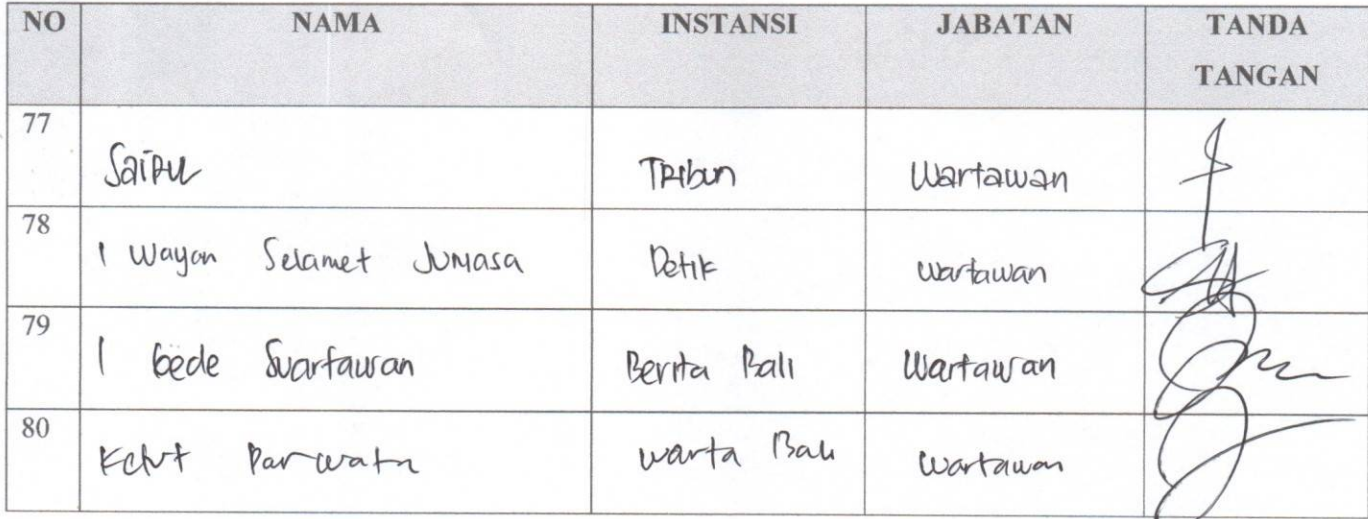 NO NAMA INSTANSI JABATAN TANDA TANGAN
77 Saipul Tribun Wartawan
78 I Wayan Selamet Jumasa Detik wartawan
79 I Gede Suartawan Berita Bali Wartawan
80 Ketut Parwata warta Bali wartawan